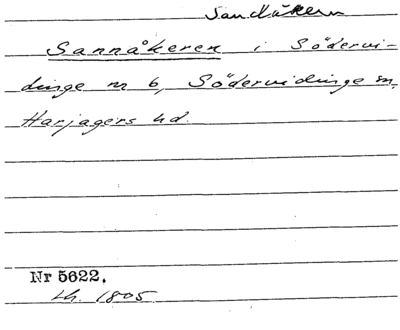 Sandåkern
Sannåkeren i Södervi-
dinge n 6, Södervidinge sn,
Harjagers hd.
Nr 5622.
Lh. 1805